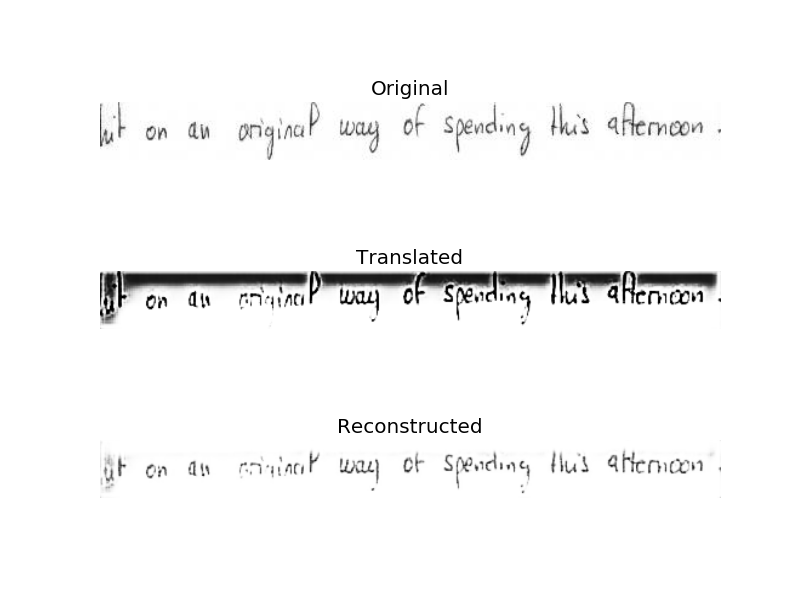 Original
hit on an original way of spending this afternoon .
Translated
hit on an original way of spending this afternoon .
Reconstructed
hit on an original way of spending this afternoon .